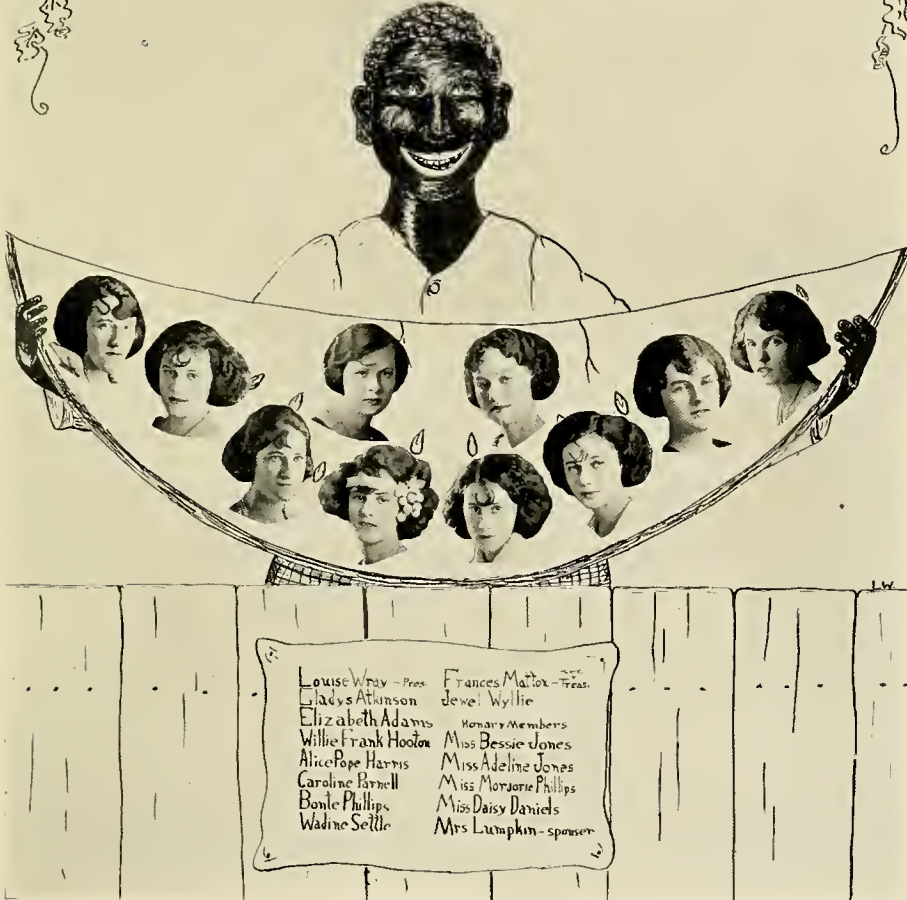 L.W.
Louise Wray - Pres.
Gladys Atkinson
Elizabeth Adams
Willie Frank Hooton
Alice Pope Harris
Caroline Parnell
Bonte Phillips
Wadine Settle
Frances Mattox - Sec. Treas.
Jewel Wyllie
Honary Members
Miss Bessie Jones
Miss Adeline Jones
Miss Morjorie Phillips
Miss Daisy Daniels
Mrs Lumpkin - sponser